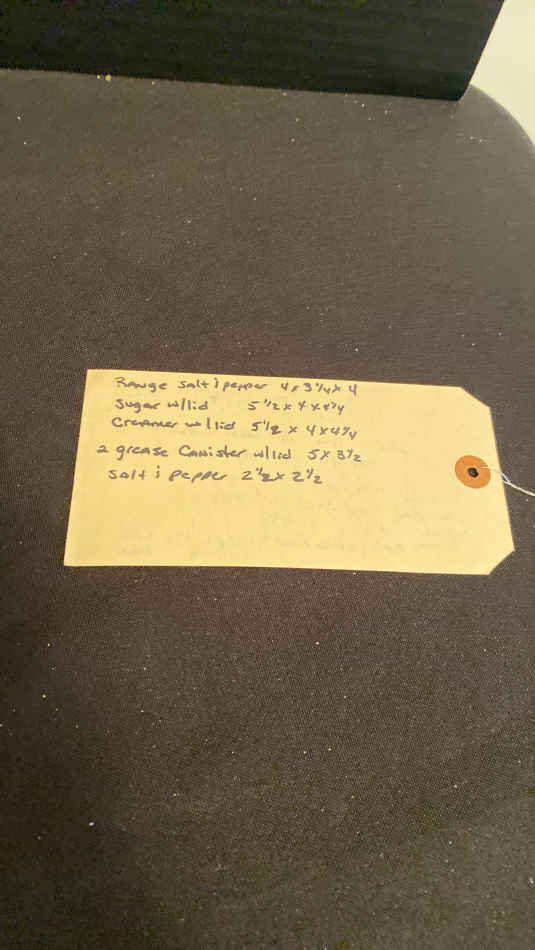 Range salt & pepper 4 x 3 1/4 x 4
Sugar w/lid 5 1/2 x 4 x 4 3/4
Creamer w/lid 5 1/2 x 4 x 4 3/4
2 grease Canister w/lid 5 x 3 1/2
Salt & pepper 2 1/2 x 2 1/2